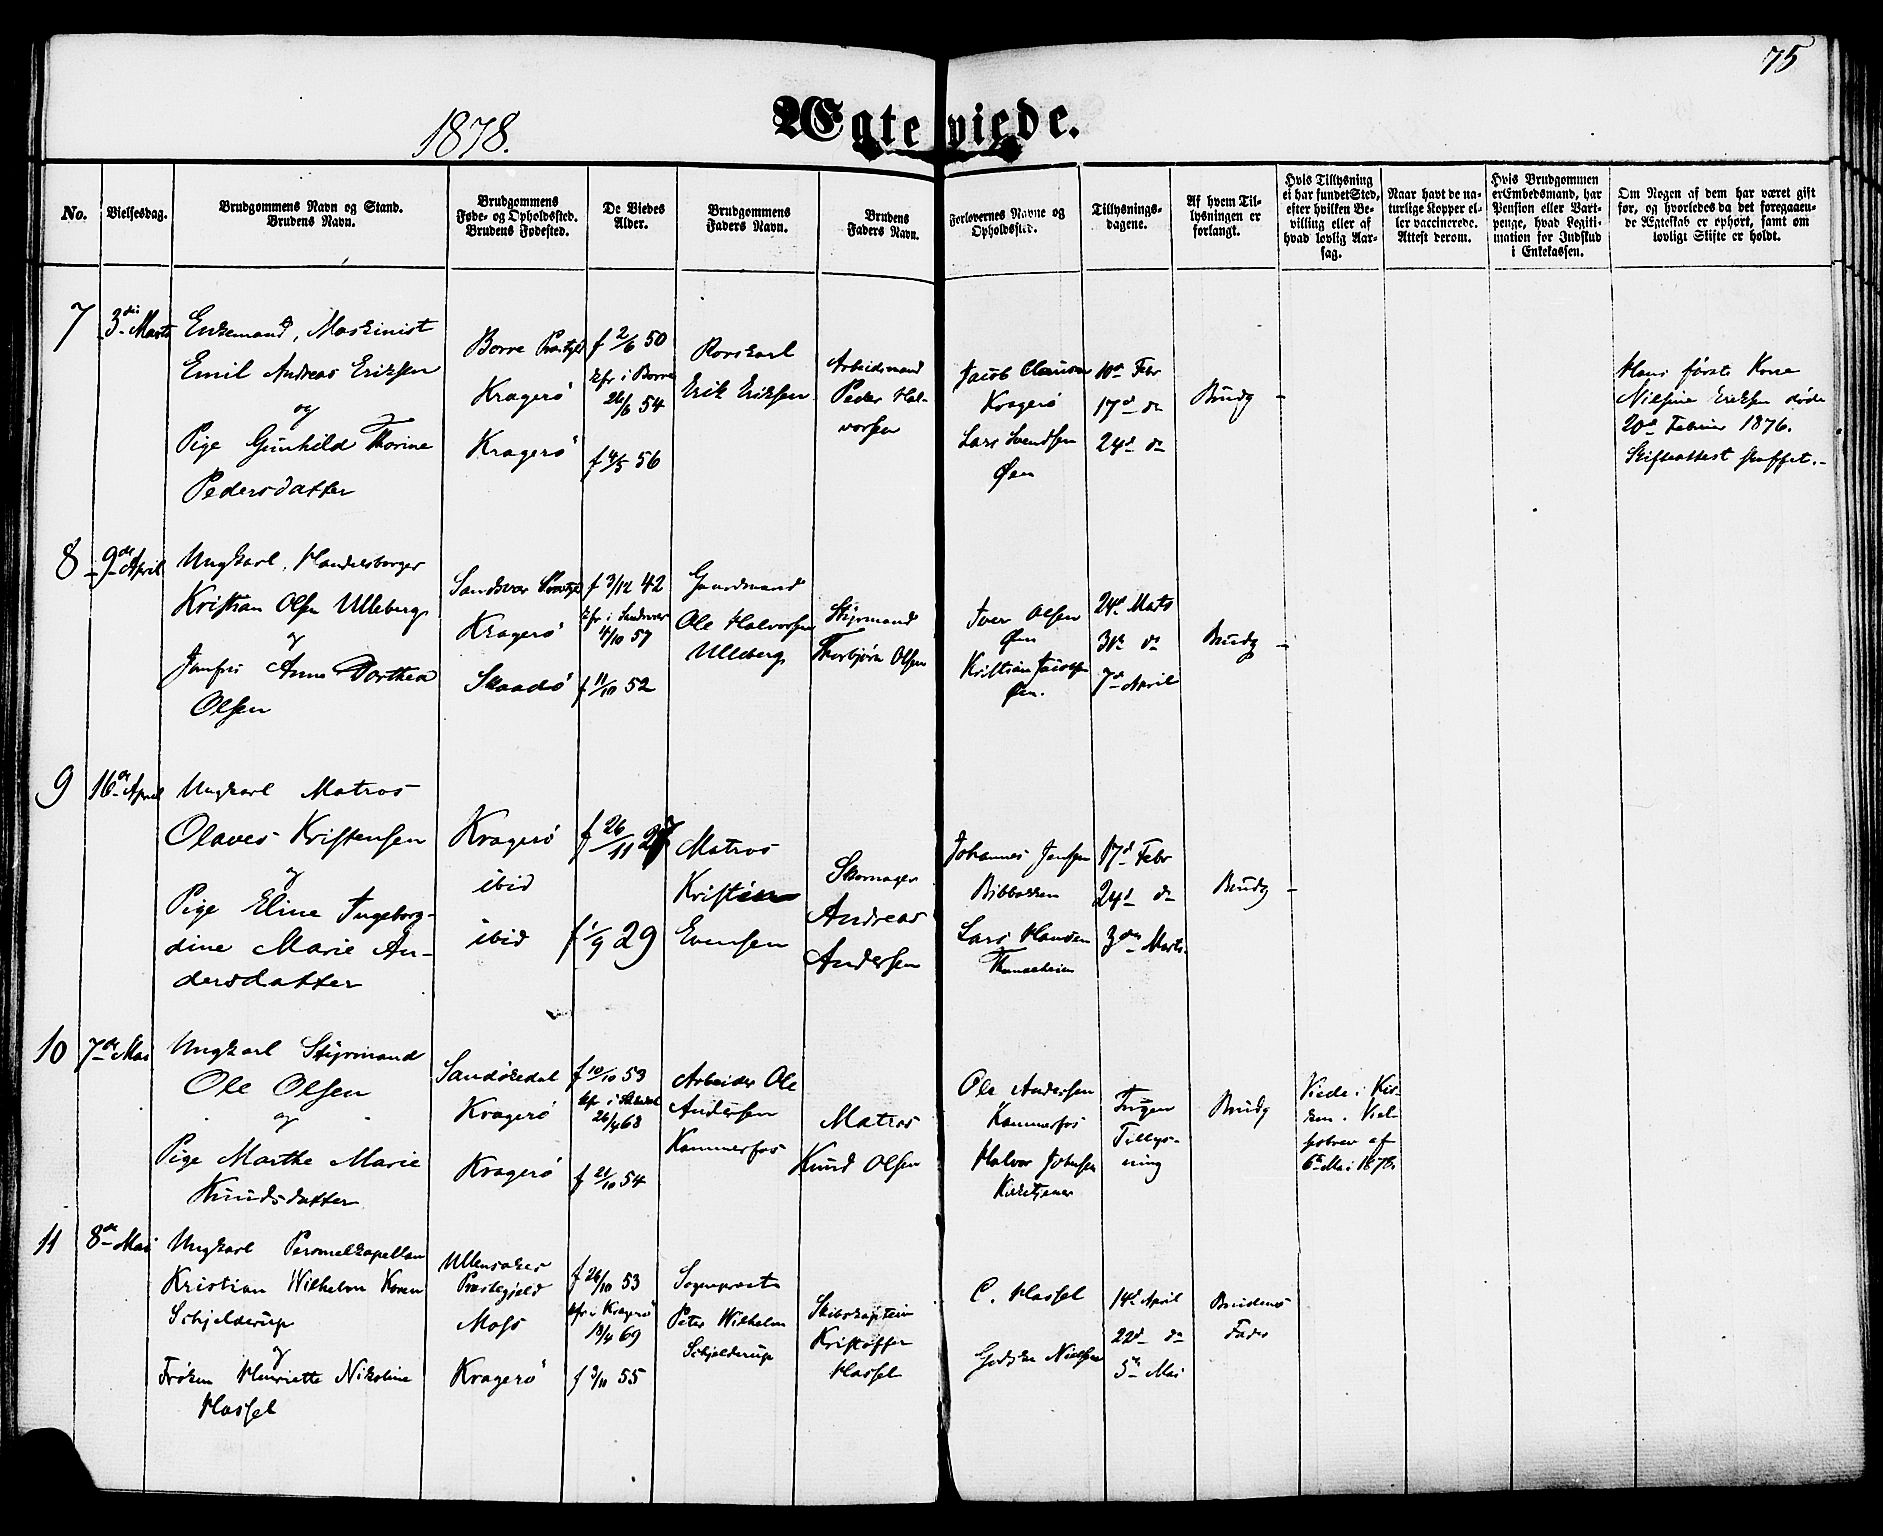 75
1878.
Ægteviede.
No.
Vielsesdag.
Brudgommens Navn og Stand.
Brudens Navn.
Brudgommens
Føde- og Opholdssted.
Brudens Fødested.
De Viedes
Alder.
Brudgommens
Faders Navn.
Brudens
Faders Navn.
Forlovernes Navne og
Opholdssted.
Tillysnings-
dagene.
Af hvem Til-
lysningen er
forlangt.
Hvis Tillysning
ei har fundet Sted,
efter hvilken Be-
villing eller af
hvad lovlig Aar-
sag.
Naar havt de na-
turlige Kopper el-
ler vaccinerede.
Attest derom.
Hvis Brudgommen
er Embedsmand, har
Pension eller Vart-
penge, hvad Legiti-
mation for Indskud
i Enkekassen.
Om Nogen af dem har været gift
før, og hvorledes da det foregaaen-
de Ægteskab er ophørt, samt om
lovligt Skifte er holdt.
7
3die Marts
Enkemand, Maskinist
Emil Andreas Eriksen
og
Pige Gunhild Thorine
Pedersdatter
Borre Præstgj
Kragerø
Kragerø
f 2/6 50
kfr i Borre
54
f 4/5 56
Rorskarl
Erik Eriksen
Arbeidsmand
Peder Hal-
vorsen
Jacob Clausen
Kragerø
Lars Svendsen
Øen
10de Febr
17d do
24d do
Brudg -
Hans første Kone
Nilsine Eriksen døde
20d Februar 1876.
Skifteattest skaffet.-
8
9de April
Ungkarl, Handelsborger
Kristian Olsen Ulleberg
og
Jomfru Anne Dorthea
Olsen
Sandsvær Præstgj
Kragerø
Skaadø
f 3/12 42
kfr i Sandsvær
4/10 57
f 11/10 52
Gaardmand
Ole Halvorsen
Ulleberg
Styrmand
Thorbjørn Olsen
Iver Olsen
Øen
Kristian Jacobsen
Øen.
24d Mats
31te do
7de April
Brudg -
9
16de April
Ungkarl Matros
Olaves Kristensen
og
Pige Eline Ingeborg-
dine Marie An-
dersdatter
Kragerø
ibid
ibid
f 26/11 27
f 1/9 29
Matros
Kristen
Evensen
Skomager
Andreas
Andersen
Johannes Jensen
Bibbakken
Lars Hansen
17d Febr
24d do
3die Marts.
Brudg -
10
7de Mai
Ungkarl Styrmand
Ole Olsen
og
Pige Marthe Marie
Knudsdatter
Sandøkedal
Kragerø
Kragerø
f 10/10 53
26/4 68
f 21/10 54
Arbeider Ole
Andersen
Kammerfos
Matros
Knud Olsen
Ole Andersen
Kammerfos
Halvor Johnsen
Kirketjener
Ingen
Tillys-
ning
Brudg
Viede i Kir-
ken. Viel-
sesbrev af
6te Mai 1878.
11
8de Mai
Ungkarl Personelkapellan
Kristian Wilhelm Koren
Schjelderup
og
Frøken Henriette Nikoline
Hassel
Ullensaker
Præstegjeld
Moss
Kragerø
f 26/10 53
kfr i Kragerø
18/4 69
f 3/11 55
Sogneprest
Peter Wilhelm
Schjelderup
Skibskaptein
Kristoffer
Hassel
C. Hassel
Godske Nielsen
14d April
22d do
5te Mai
Brudens
Fader